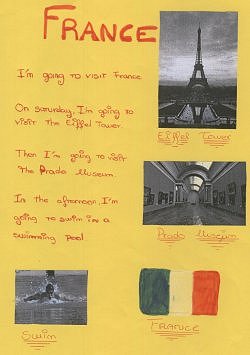 FRANCE
I'm going to visit France
On saturday, I'm going to
visit the Eiffel Tower.
Eiffel Tower
Then I'm going to visit
the Prado Museum.
In the afternoon, I'm
going to swim in a
swimming pool.
Prado Museum
Swim
FRANCE